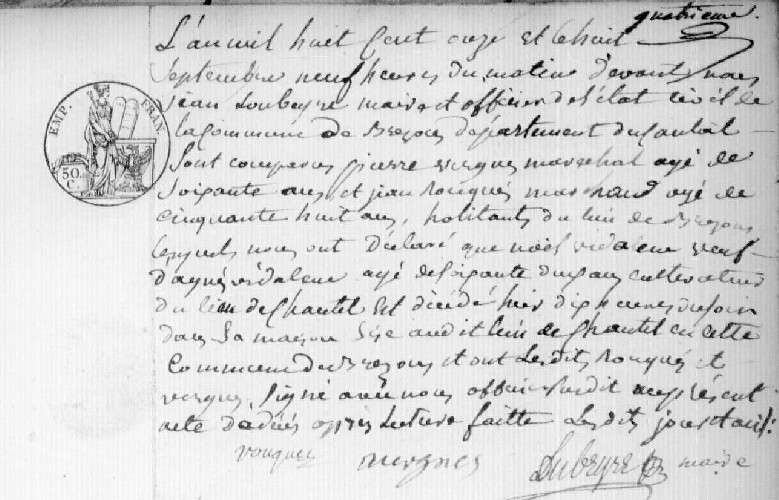 quatrieme.
L'an mil huit Cent onze et le huit
Septembre neuf heures du matin devant nous
jean Loubeyre maire et officier de l'état civil de
la Commune de Brezons département du Cantal
Sont comparus pierre vergnes mareschal agé de
Soixante ans, et jean Rouqués marchand agé de
cinquante huit ans, habitants du lieu de Brezons
lesquels nous ont déclaré que noel vidalenc veuf
d'agnés vidalenc agé de Soixante ans cultivateur
du lieu de Chantel Est décédé hier dix heures du soir
dans Sa maison Size audit lieu de Chantel en cette
Commune de Brezons et ont Lesdits Rouqués et
vergnes, Signé avec nous officier susdit au présent
acte de décés aprés Lecture faitte Lesdits jour et an
EMP. FRAN.
50 C.
rouques vergnes Lubeyre maire